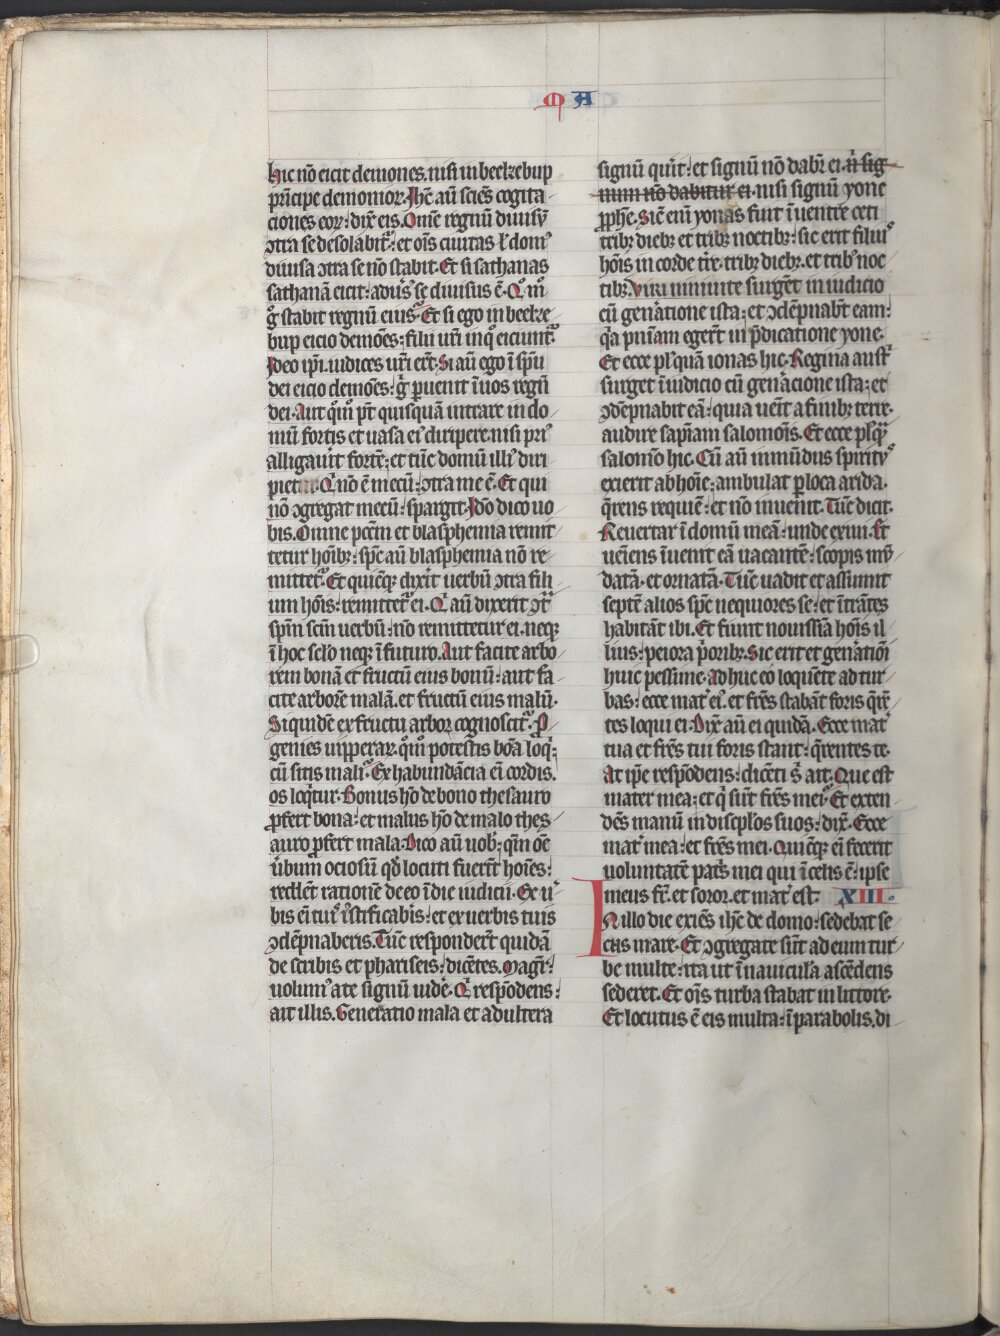 M A
hic nõ eicit demones. nisi in beelzebup
pͥncipe demonioꝝ. Ihc̃ aũ sciẽs cogita
ciones eoꝝ: dixͭ eis. Omẽ regnũ diuisũ
ↄtra se desolabitᷣ: et oĩs ciuitas ł domꝰ
diuisa ↄtra se nõ stabit. Et si sathanas
sathanã eicit: aduꝰs se diuisus ẽ. Qͦ m̊
gͦ stabit regnũ eius? Et si ego in beelze
bup eicio demões: filii ur̃i in qͦ eiciunt?
Ideo ip̃i. iudices ur̃i er̃t. Si aũ ego ĩ sp̃u
dei eicio demões: gͥ ꝑuenit ĩ uos regñ
dei. Aut qͦm̊ pt̃ quisquã intrare in do
mũ fortis et uasa eiꝰ diripere. nisi priꝰ
alligauit fortẽ: et tũc domũ illiꝰ diri
piet. Qͥ nõ ẽ mecũ: ↄtra me ẽ. Et qui
nõ ↄgregat mecũ: spargit. Idõ dico uo
bis. Omne pcc̃m et blasphemia remit
tetur hoĩbꝫ: sp̃c aũ blasphemia nõ re
mittetᷣ. Et quicũqꝫ dixit uerbũ ↄtra fili
um hoĩs: remittetᷣ ei. Qͥ aũ dixerit ↄtͣ
sp̃m sc̃m uerbũ: nõ remittetur ei. neqꝫ
ĩ hoc sel̃o neqꝫ ĩ futuro. Aut facite arbo
rem bonã et fructũ eius bonũ: aut fa
cite arborẽ malã. et fructũ eius malũ.
Siquidẽ ex fructu arboꝛ cognoscitᷣ. Pͦ
genies uip̃peraꝝ. qͦm̊ potestis bõa loqͥ:
cũ sitis mali? Ex habundãcia ei̇̃ cordis.
os loqͥtur. Bonus hõ de bono thesauro
ꝓfert bona: et malus hõ de malo thes
auro ꝓfert mala. Dico aũ uob̾: qm̃ oẽ
u̾bum ociosũ qđ locuti fuerĩt hoĩes:
reddẽt rationẽ de eo ĩ die iudicii. Ex uͤ
bis eĩ tuiͨ iꝰstificabiṡ: et ex uerbis tuis
ↄdẽpnaberis. Tũc responder̃t quidã
de scribis et phariseis: dicẽtes. Magr̃:
uolumꝰ a te signũ uidẽ. Qͥ respõdens:
ait illis. Generatio mala et adultera
signũ qui̾t: et signũ nõ dabiᷣ ei. n̊ sig
num nõ dabitur ei. nisi signũ yone
ꝓph̃e. Sic̃ enĩ yonas fuit ĩ uentre ceti
tribꝫ diebꝫ et tribꝫ noctibꝫ: sic erit filiuꝰ
hõis in corde tr̃e. tribꝫ diebꝫ. et tribꝰ noc
tibꝫ. Viri niniuite surgẽt in iudicio
cũ gen̾atione ista: et ↄdẽpnabt̃ eam:
qͥa pñiam egerĩt in p̃dicatione yone.
Et ecce plꝰ quã ionas hic. Regina austͥ
surget ĩ iudicio cũ gen̾acione ista: et
ↄdẽpnabit eã: quia uẽit a finibꝫ terre.
audire sap̃iam salomõis. Et ecce plꝰ qͣꝫ
salomõ hic. Cũ aũ inmũdus spirituꝰ
exierit ab hoĩe: ambulat ꝑ loca arida.
qͣrens requiẽ: et nõ inuenit. Tũc dicit.
Reuertar ĩ domũ meã: unde exiui. Et
ueĩens ĩuenit eã uacantẽ: scopis mũ
datã. et ornatã. Tũc uadit et assumit
septẽ alios sp̃c nequiores se: et ĩtrãtes
habitãt ibi. Et fiunt nouissĩa hoĩs il
lius: peiora pͥoribꝫ. Sic erit et gen̾atiõi
huic pessime. Adhuc eo loquẽte ad tur
bas: ecce mat̾ eiꝰ. et fr̃es stabãt foris qͣrẽ
tes loqui ei. Dixͭ aũ ei quidã. Ecce mat̾
tua et fr̃es tui foris stant: qͣrentes te.
At ip̃e respõdens: dicẽti s̾ ait. Que est
mater mea: et qͥ sũt fr̃es mei? Et exten
dẽs manũ in discip̃los suos: dixͭ. Ecce
mat̾ mea: et fr̃es mei. Quicũqꝫ ei̇̃ fecerit
uoluntatẽ pat̾s mei qui ĩ celis ẽ: ipse
meus fr̃. et soror. et mat̾ est. XIII.
In illo die exiẽs ih̃c de domo: sedebat se
cus mare. Et ↄgregate sũt ad eum tur
be multe: ita ut ĩ nauicula ascẽdens
sederet. Et oĩs turba stabat in littore.
Et locutus ẽ eis multa: ĩ parabolis. di